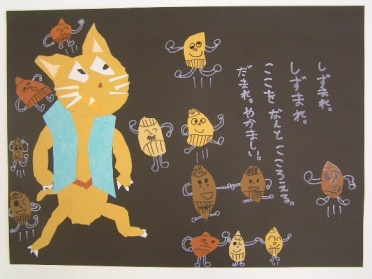 しずまれ。
しずまれ。
ここをなんとこころえる。
だまれ。やかましい。